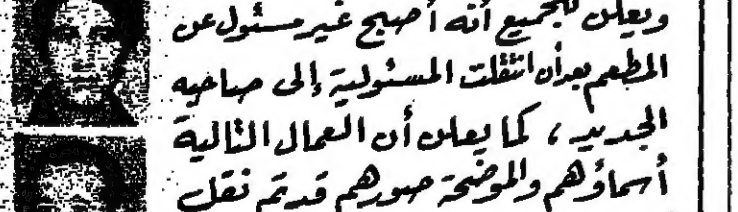 ويعلن للجميع أنه أصبح غير مسئول عن
المطعم بعد أن انتقلت المسئولية إلى صاحبه
الجديد ، كما يعلن أن العمال التالية
أسماؤهم والموضحة صورهم قد تم نقل